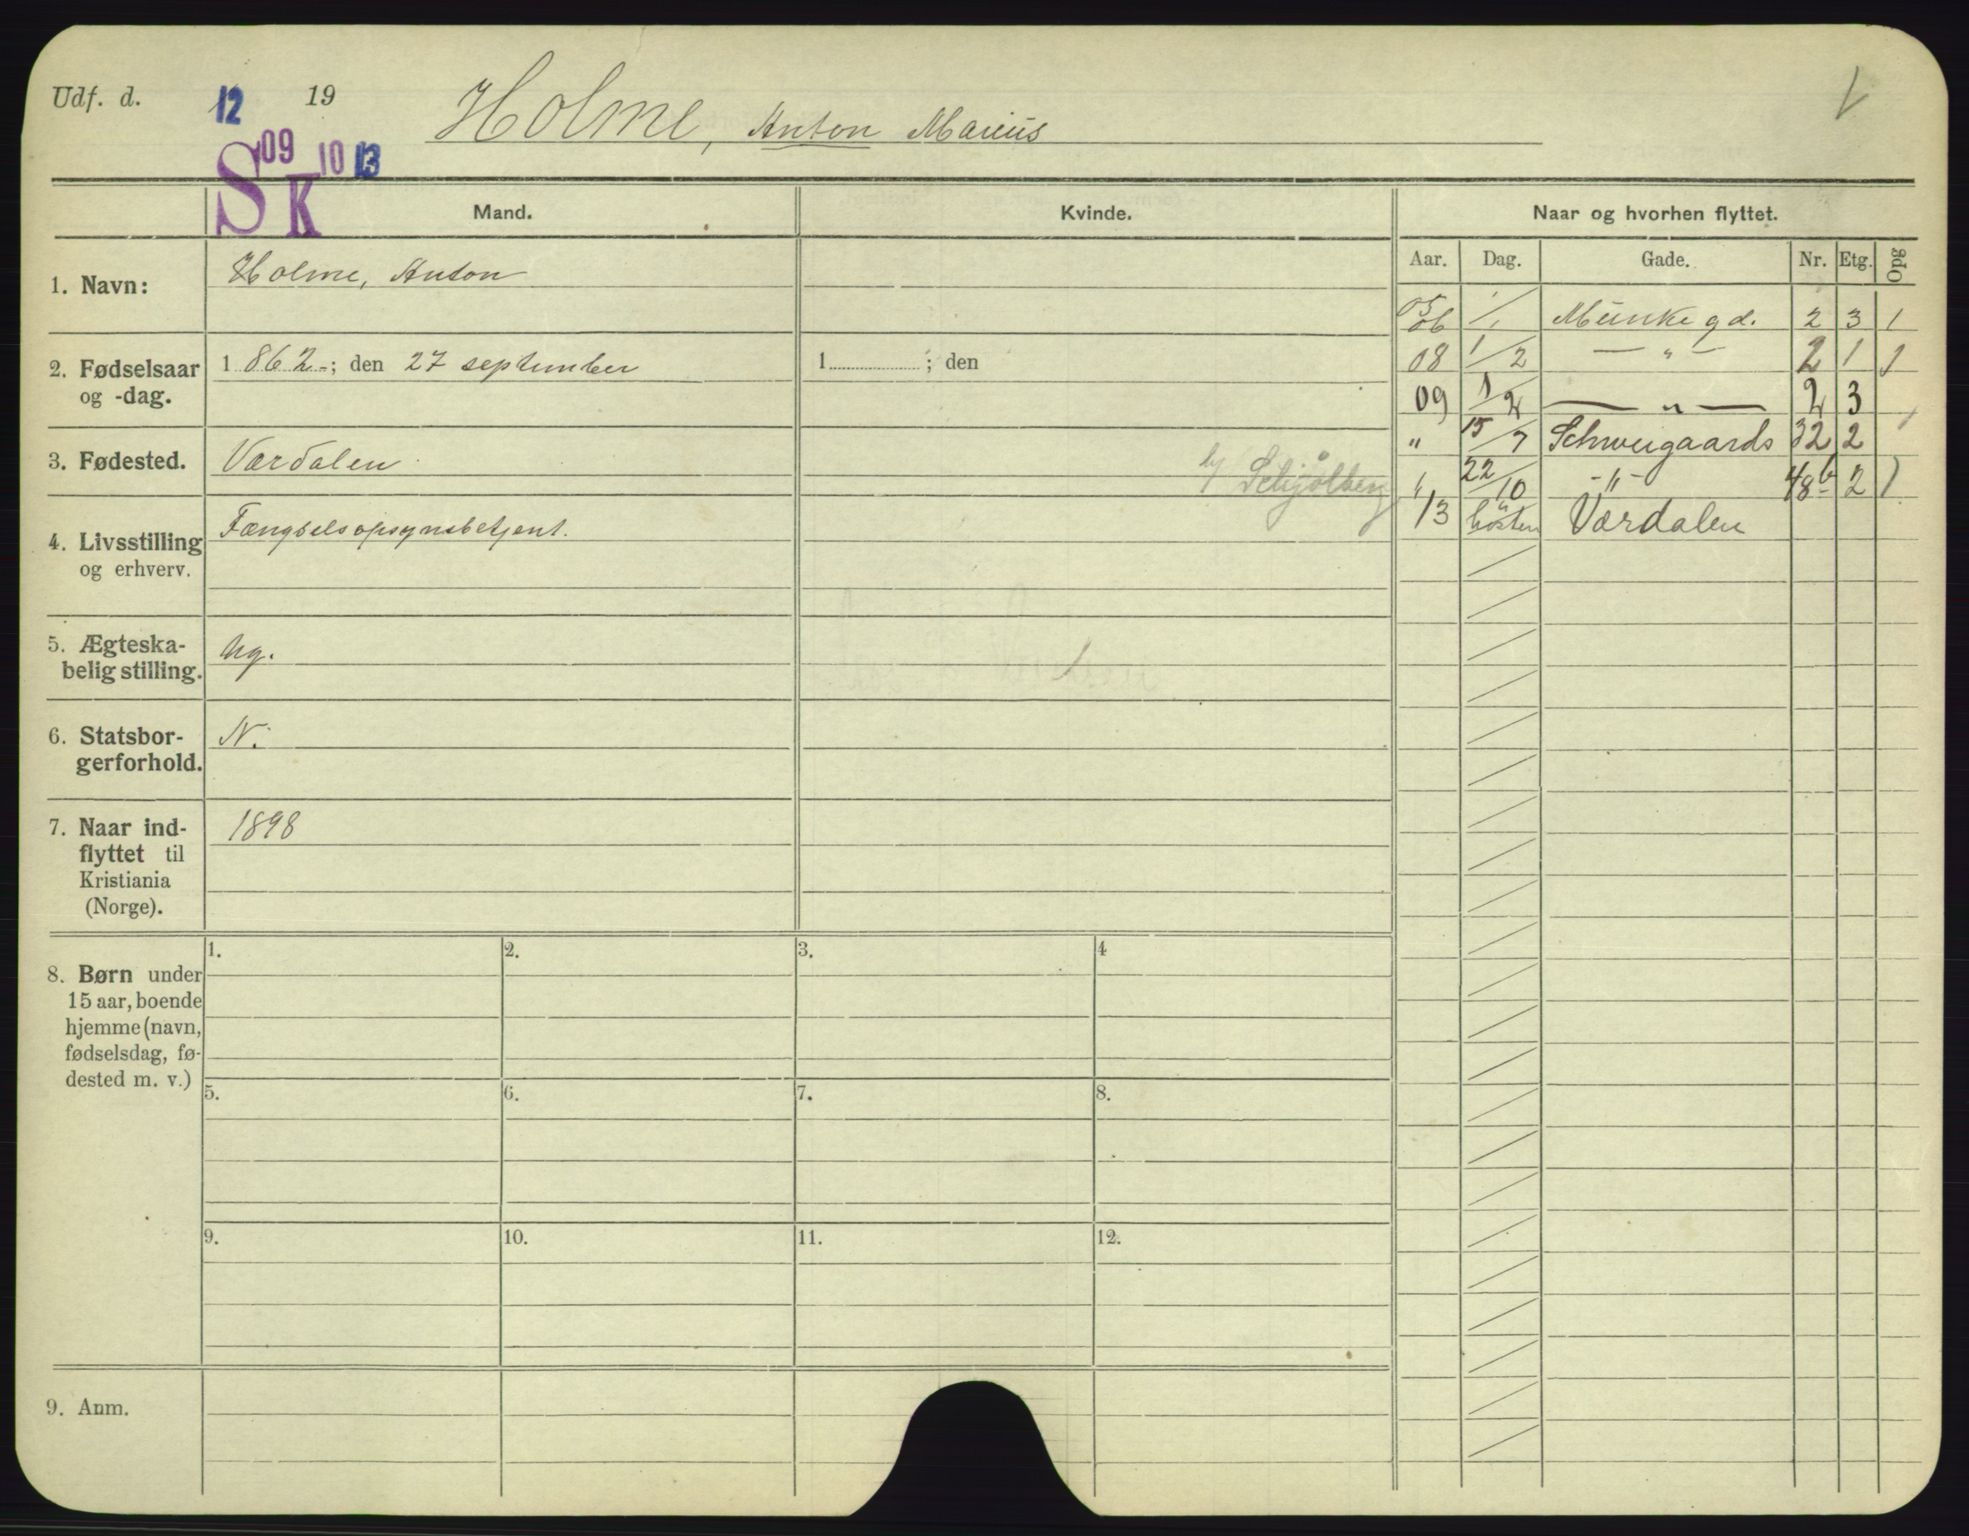 Udf. d. 12 19 Holme, Anton Marius
S 09 K 10 13
Mand. Kvinde. Naar og hvorhen flyttet.
Aar. Dag. Gade. Nr. Etg. Opg
1. Navn: Holme, Anton
2. Fødselsaar og -dag. 1862 ; den 27 september 1 ; den
3. Fødested. Værdalen
4. Livsstilling og erhverv. Fængselsopsynsbetjent.
5. Ægteska-
belig stilling. Ug.
6. Statsbor-
gerforhold. N.
7. Naar ind-
flyttet til
Kristiania
(Norge). 1898
8. Børn under
15 aar, boende
hjemme (navn,
fødselsdag, fø-
dested m. v.)
1. 2. 3. 4
5. 6. 7. 8.
9. 10. 11. 12.
9. Anm.
05
06 1/1 Munkegd. 2 3 1
08 1/2 — " — 2 1 1
09 1/2 — " — 2 3
" 15/7 Schweigaards 32 2
b/ Schjølberg " 22/10 - " - 48b 2 1
13 høsten Værdalen